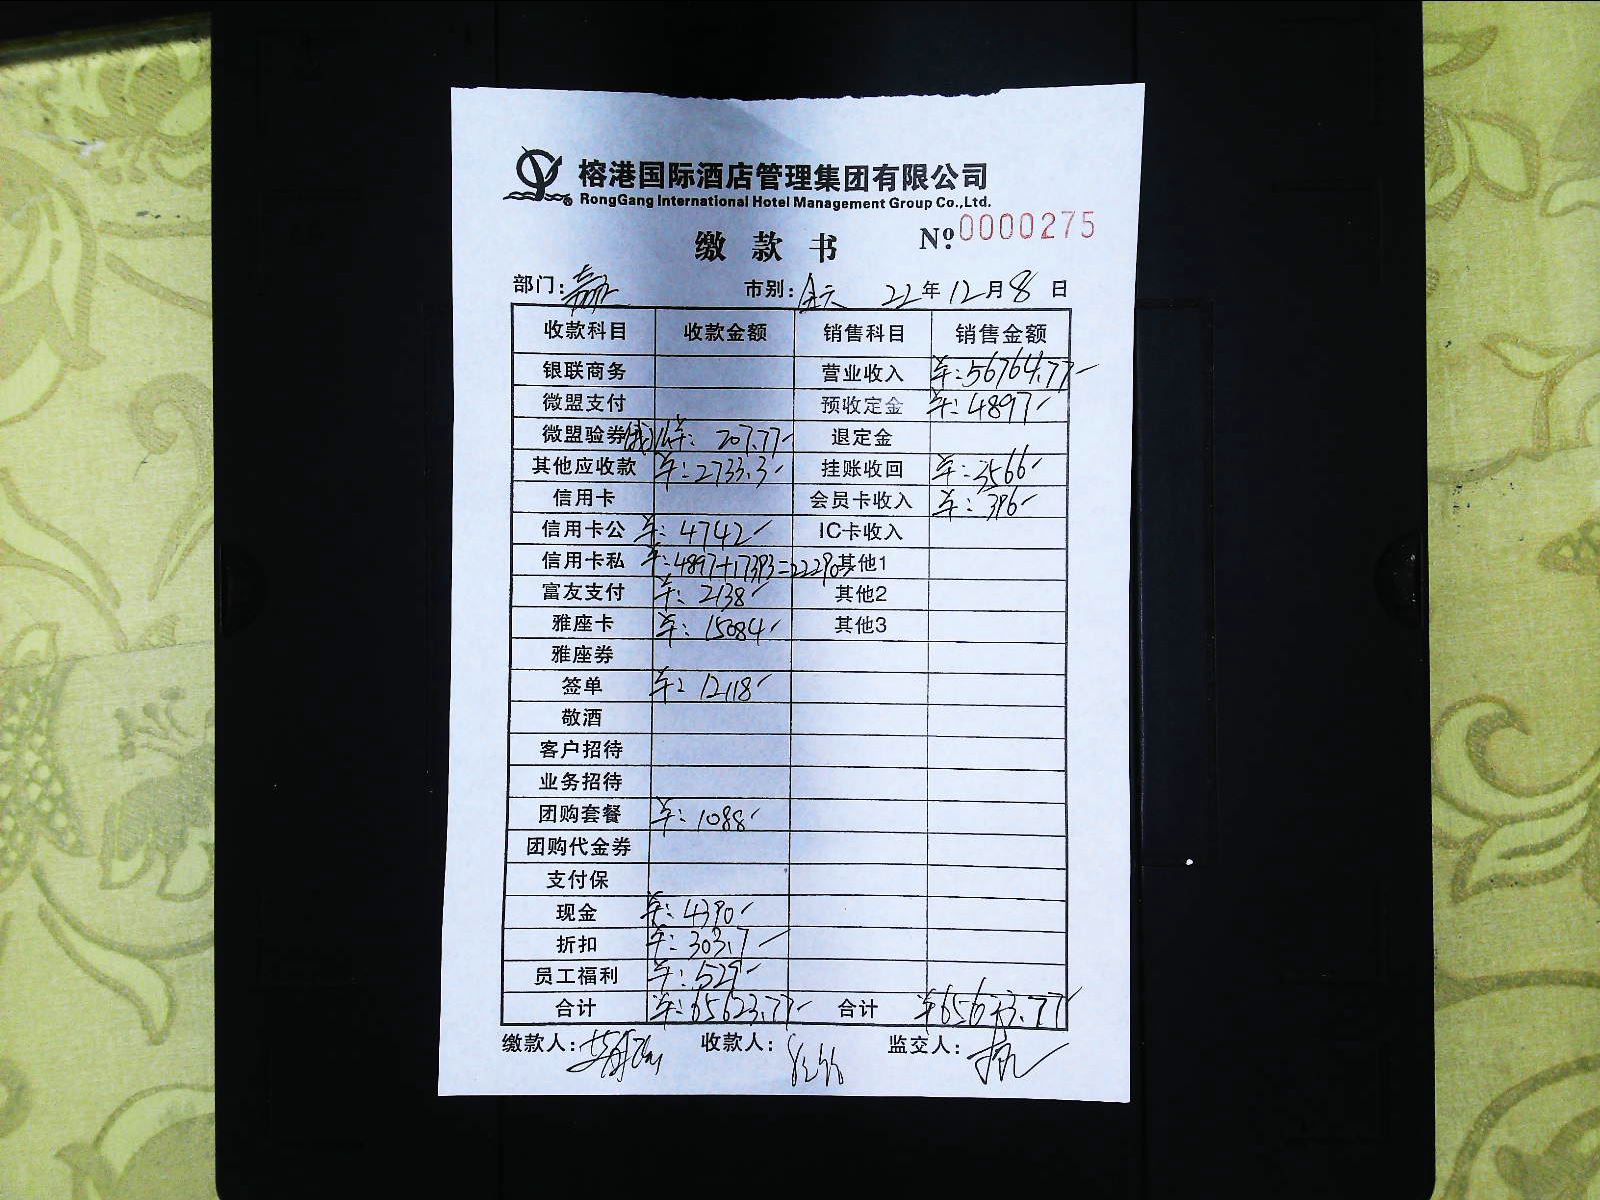 榕港国际酒店管理集团有限公司
RongGang International Hotel Management Group Co.,Ltd.
缴款书 №0000275
部门: 市别:全天 22年12月8日
收款科目 收款金额 销售科目 销售金额
银联商务 营业收入 ¥:56764.77
微盟支付 预收定金 ¥:4897
微盟验券 ¥:207.77 退定金
其他应收款 ¥:2733.3 挂账收回 ¥:3566
信用卡 会员卡收入 ¥:396
信用卡公 ¥:4742 IC卡收入
信用卡私 ¥:4897+17393=22290 其他1
富友支付 ¥:2138 其他2
雅座卡 ¥:15084 其他3
雅座券
签单 ¥:12118
敬酒
客户招待
业务招待
团购套餐 ¥:1088
团购代金券
支付保
现金 ¥:4390
折扣 ¥:303.7
员工福利 ¥:529
合计 ¥:65623.77 合计 ¥65623.77
缴款人: 收款人: 监交人: